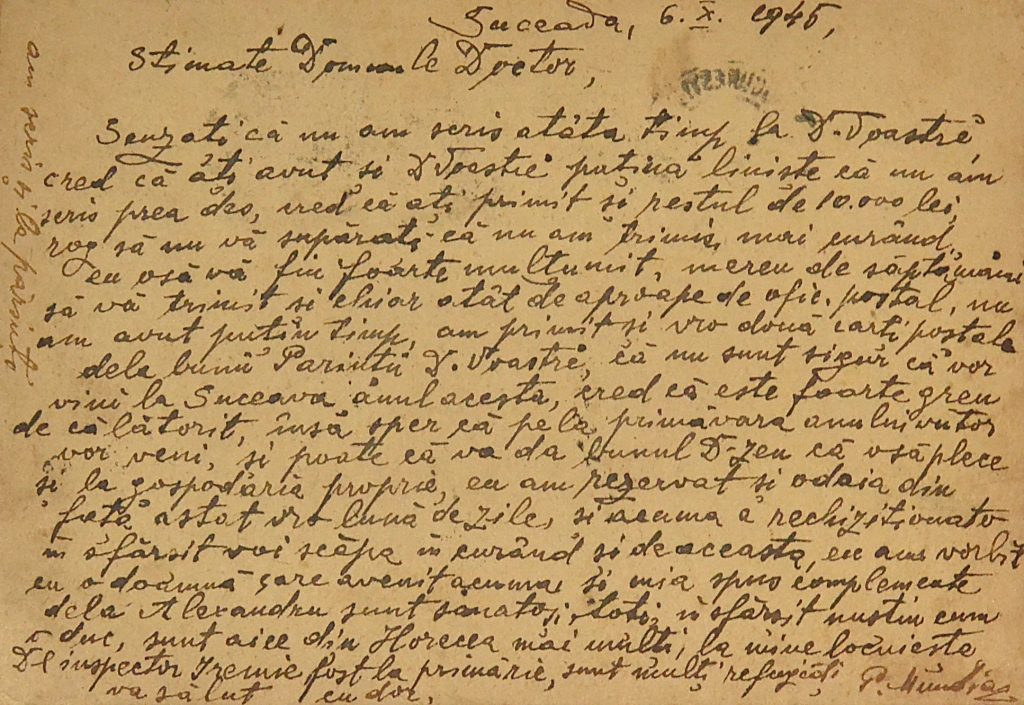 Suceava, 6. X. 1945,
Stimate Domnule Doctor,
Scuzati că nu am scris atâta timp la D-Voastră
cred că ați avut si D Voastră putină liniste că nu am
scris prea des, cred că ați primit și restul de 10.000 lei,
rog să nu vă supărati că nu am trimis mai curând,
eu osă vă fiu foarte multumit, mereu de săptămâni
să vă trimit si chiar atât de aproape de ofic. postal, nu
am avut putin timp, am primit si vro două carti postale
dela bunii Parintii D. Voastră, că nu sunt sigur că vor
vini la Suceava anul acesta, cred că este foarte greu
de călătorit, însă sper că pela primăvara anului viitor
vor veni, si poate că va da bunul D-zeu că osă plece
si la gospodăria proprie, eu am rezervat si odaia din
fată astat vro lună de zile, si acuma a rechizitionato
în sfârsit voi scăpa în curând si de aceasta, eu am vorbit
cu o doamnă care avenit acuma, si mia spus complemente
dela Alexandru sunt sănatosi, toti, in sfârsit nustiu cum
o duc, sunt aice din Horecea mai multi, la mine locuieste
Dl inspector Iremie fost la primărie, sunt mulți refugiați
va sălut cu dor,
am scris și la părinți